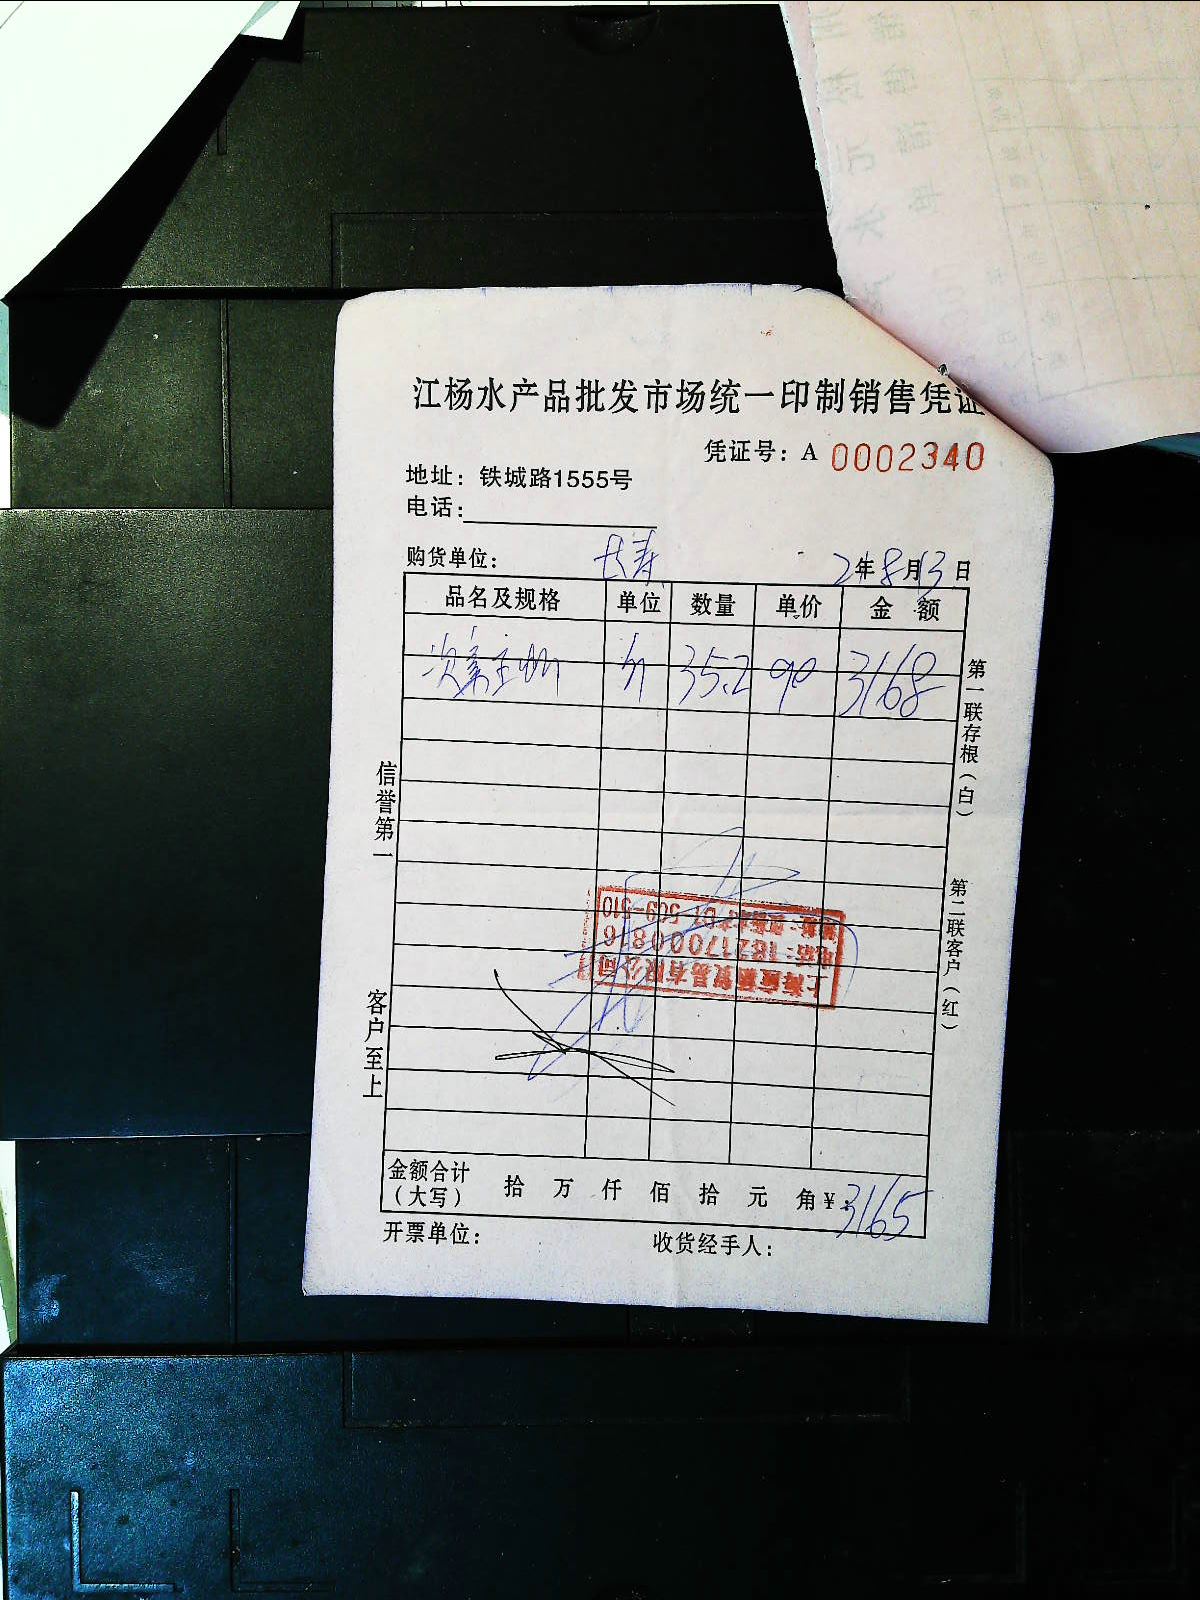 江杨水产品批发市场统一印制销售凭证
凭证号：A 0002340
地址：铁城路1555号
电话：
购货单位： 长寿 2年8月13日
品名及规格 单位 数量 单价 金额
斤 35.2 90 3168
第一联存根（白）
第二联客户（红）
信誉第一
客户至上
上海 贸易有限公司
电话：18217000816
D7 509-510
金额合计（大写） 拾 万 仟 佰 拾 元 角 ¥：3165
开票单位： 收货经手人：